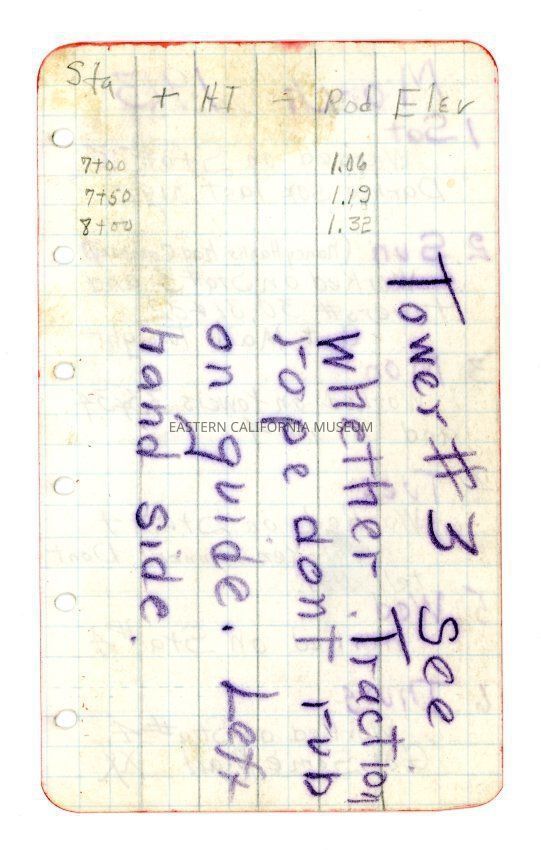 Sta + HI - Rod Elev
7+00 1.06
7+50 1.19
8+00 1.32
Tower #3 See
Whether Traction
rope dont rub
on guide. Left
hand side.
EASTERN CALIFORNIA MUSEUM